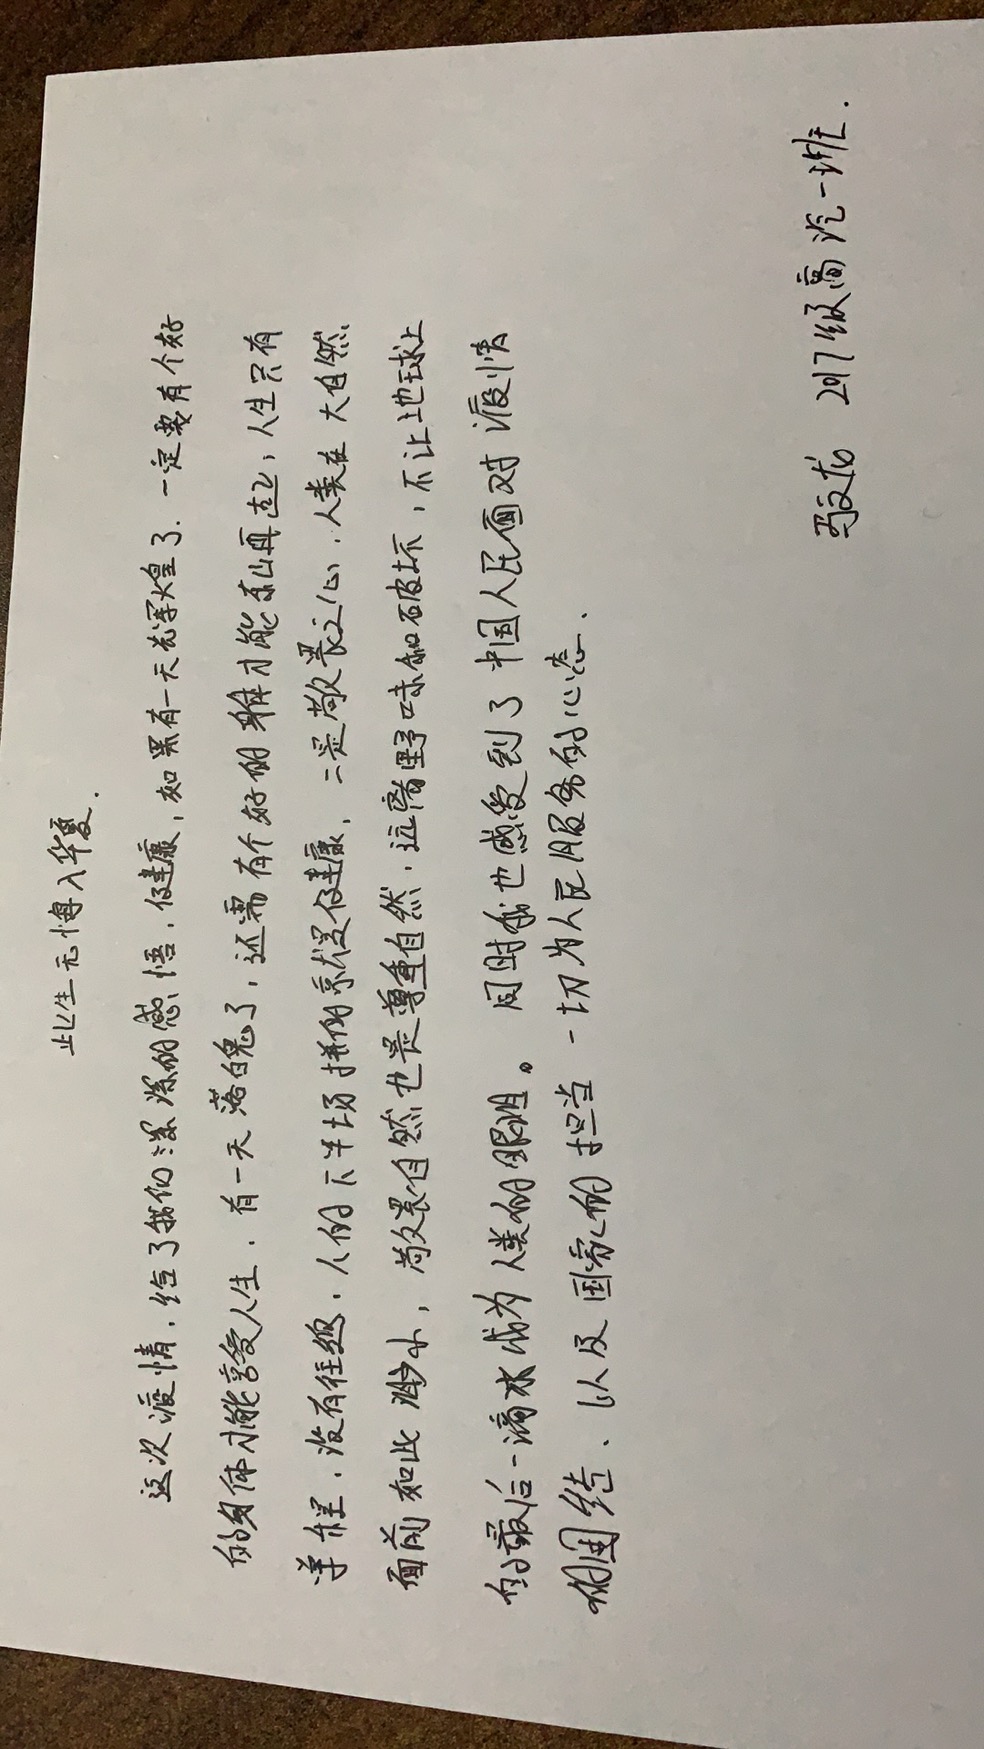 此生无悔入华夏.
这次疫情,给了我们深深的感悟,健康,如果有一天光辉煌了.一定要有个好
的身体才能享受人生.有一天落白鬼了,还需有个好的躰才能东山再起,人生只有
单程.没有往返.人的下半场拼的就是健康.二是敬畏之心,人类在大自然
面前如此渺小,敬畏自然也是尊重自然.远离野味和破坏,不让地球上
的最后一滴水成为人类的眼泪。同时我也感受到了中国人民面对疫情
的团结、以及国家的担当 一切为人民服务的心态.
文龙 2017级高汽一班.